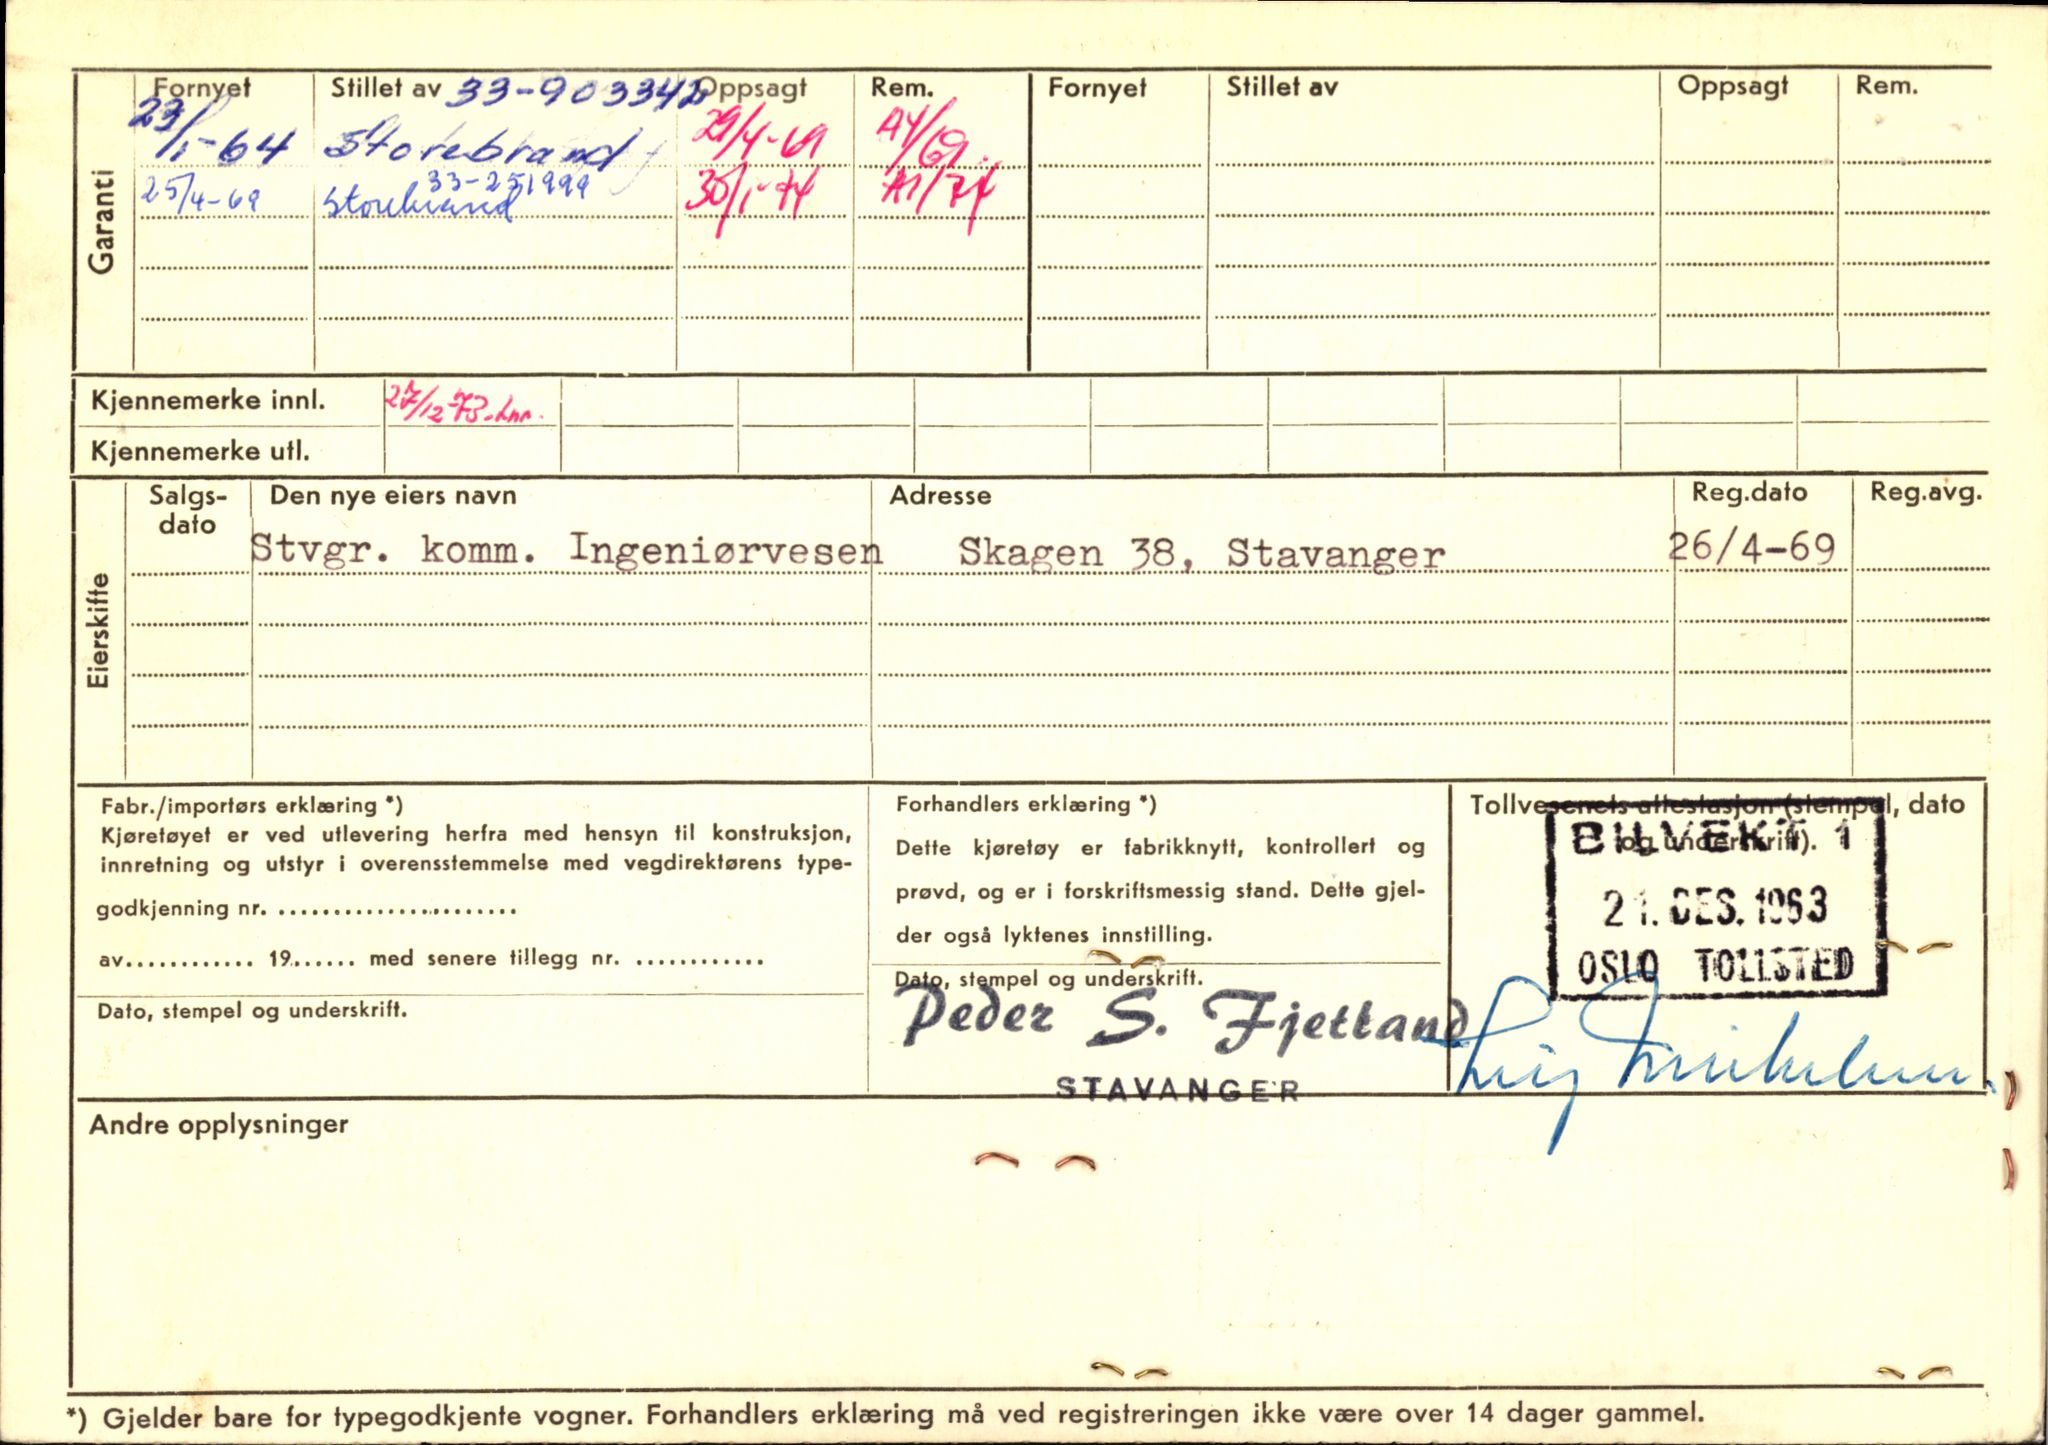 Garanti
Fornyet Stillet av 33-903342 Oppsagt Rem. Fornyet Stillet av Oppsagt Rem.
23/1-64 Storebrand 29/4-69 A4/69
33-251999
25/4-69 Storebrand 30/1-74 A1/74
Kjennemerke innl. 27/12-73
Kjennemerke utl.
Eierskifte
Salgs- Den nye eiers navn Adresse Reg.dato Reg.avg.
dato
Stvgr. komm. Ingeniørvesen Skagen 38, Stavanger 26/4-69
Fabr./importørs erklæring *)
Kjøretøyet er ved utlevering herfra med hensyn til konstruksjon,
innretning og utstyr i overensstemmelse med vegdirektørens type-
godkjenning nr. ......................
av............ 19...... med senere tillegg nr. ............
Dato, stempel og underskrift.
Forhandlers erklæring *)
Dette kjøretøy er fabrikknytt, kontrollert og
prøvd, og er i forskriftsmessig stand. Dette gjel-
der også lyktenes innstilling.
Dato, stempel og underskrift.
Peder S. Fjetland
STAVANGER
Tollvesenets attestasjon (stempel, dato
og underskrift).
BILVEKT 1
21. DES. 1963
OSLO TOLLSTED
Andre opplysninger
*) Gjelder bare for typegodkjente vogner. Forhandlers erklæring må ved registreringen ikke være over 14 dager gammel.